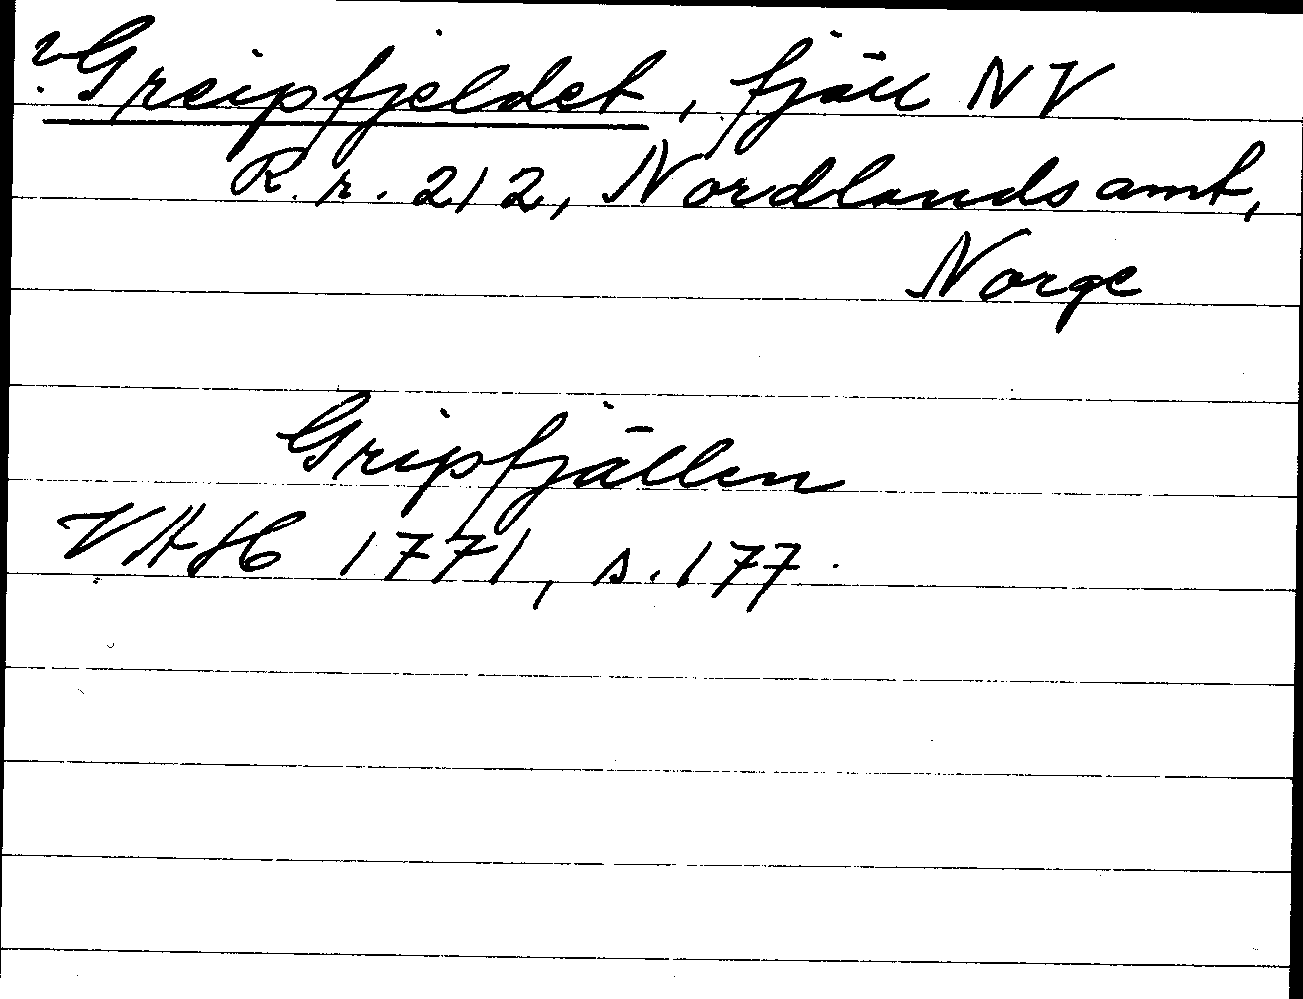 ? Greipfjeldet, fjäll NV
R. r. 212, Nordlands amt,
Norge
Gripfjällen
VAH 1771, s. 177.